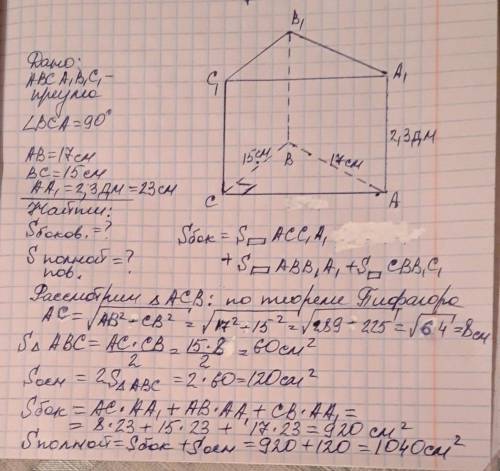 Дано:
ABCA₁B₁C₁ –
призма
∠BCA = 90°
AB = 17 см
BC = 15 см
AA₁ = 2,3 дм = 23 см
Найти:
Sбоков. = ?
S полной = ?
пов.
B₁
C₁
A₁
2,3 дм
15 см
B
17 см
C
A
Sбок = S▭ ACC₁A₁
+ S▭ ABB₁A₁ + S▭ CBB₁C₁
Рассмотрим △ACB: по теореме Пифагора
AC = √AB² - CB² = √17² - 15² = √289 - 225 = √64 = 8 см
S△ABC = AC·CB/2 = 15·8/2 = 60 см²
Sосн = 2S△ABC = 2·60 = 120 см²
Sбок = AC·AA₁ + AB·AA₁ + CB·AA₁ =
= 8·23 + 15·23 + 17·23 = 920 см²
Sполной = Sбок + Sосн = 920 + 120 = 1040 см²